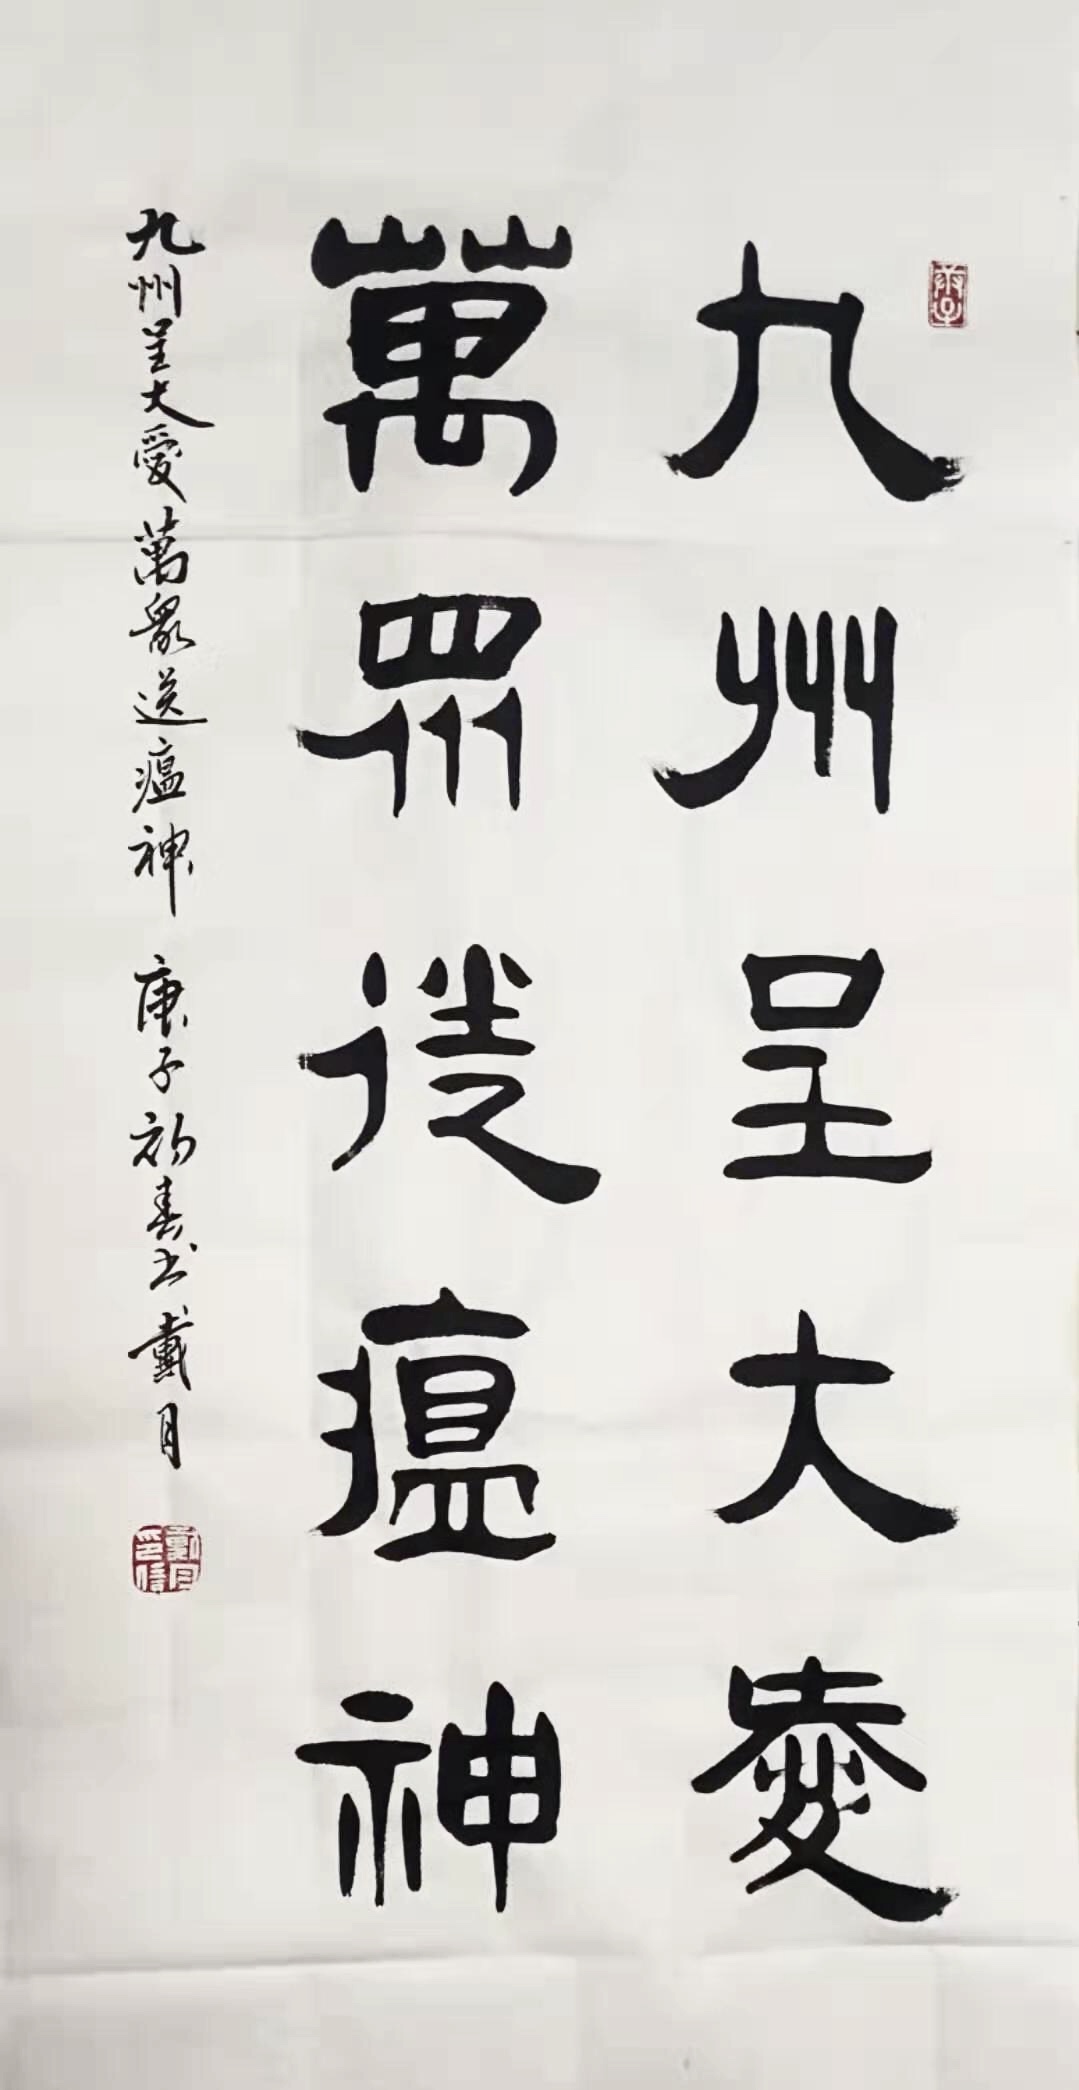 九州呈大愛
萬眾送瘟神
九州呈大愛萬眾送瘟神 庚子初春書戴月
庚子